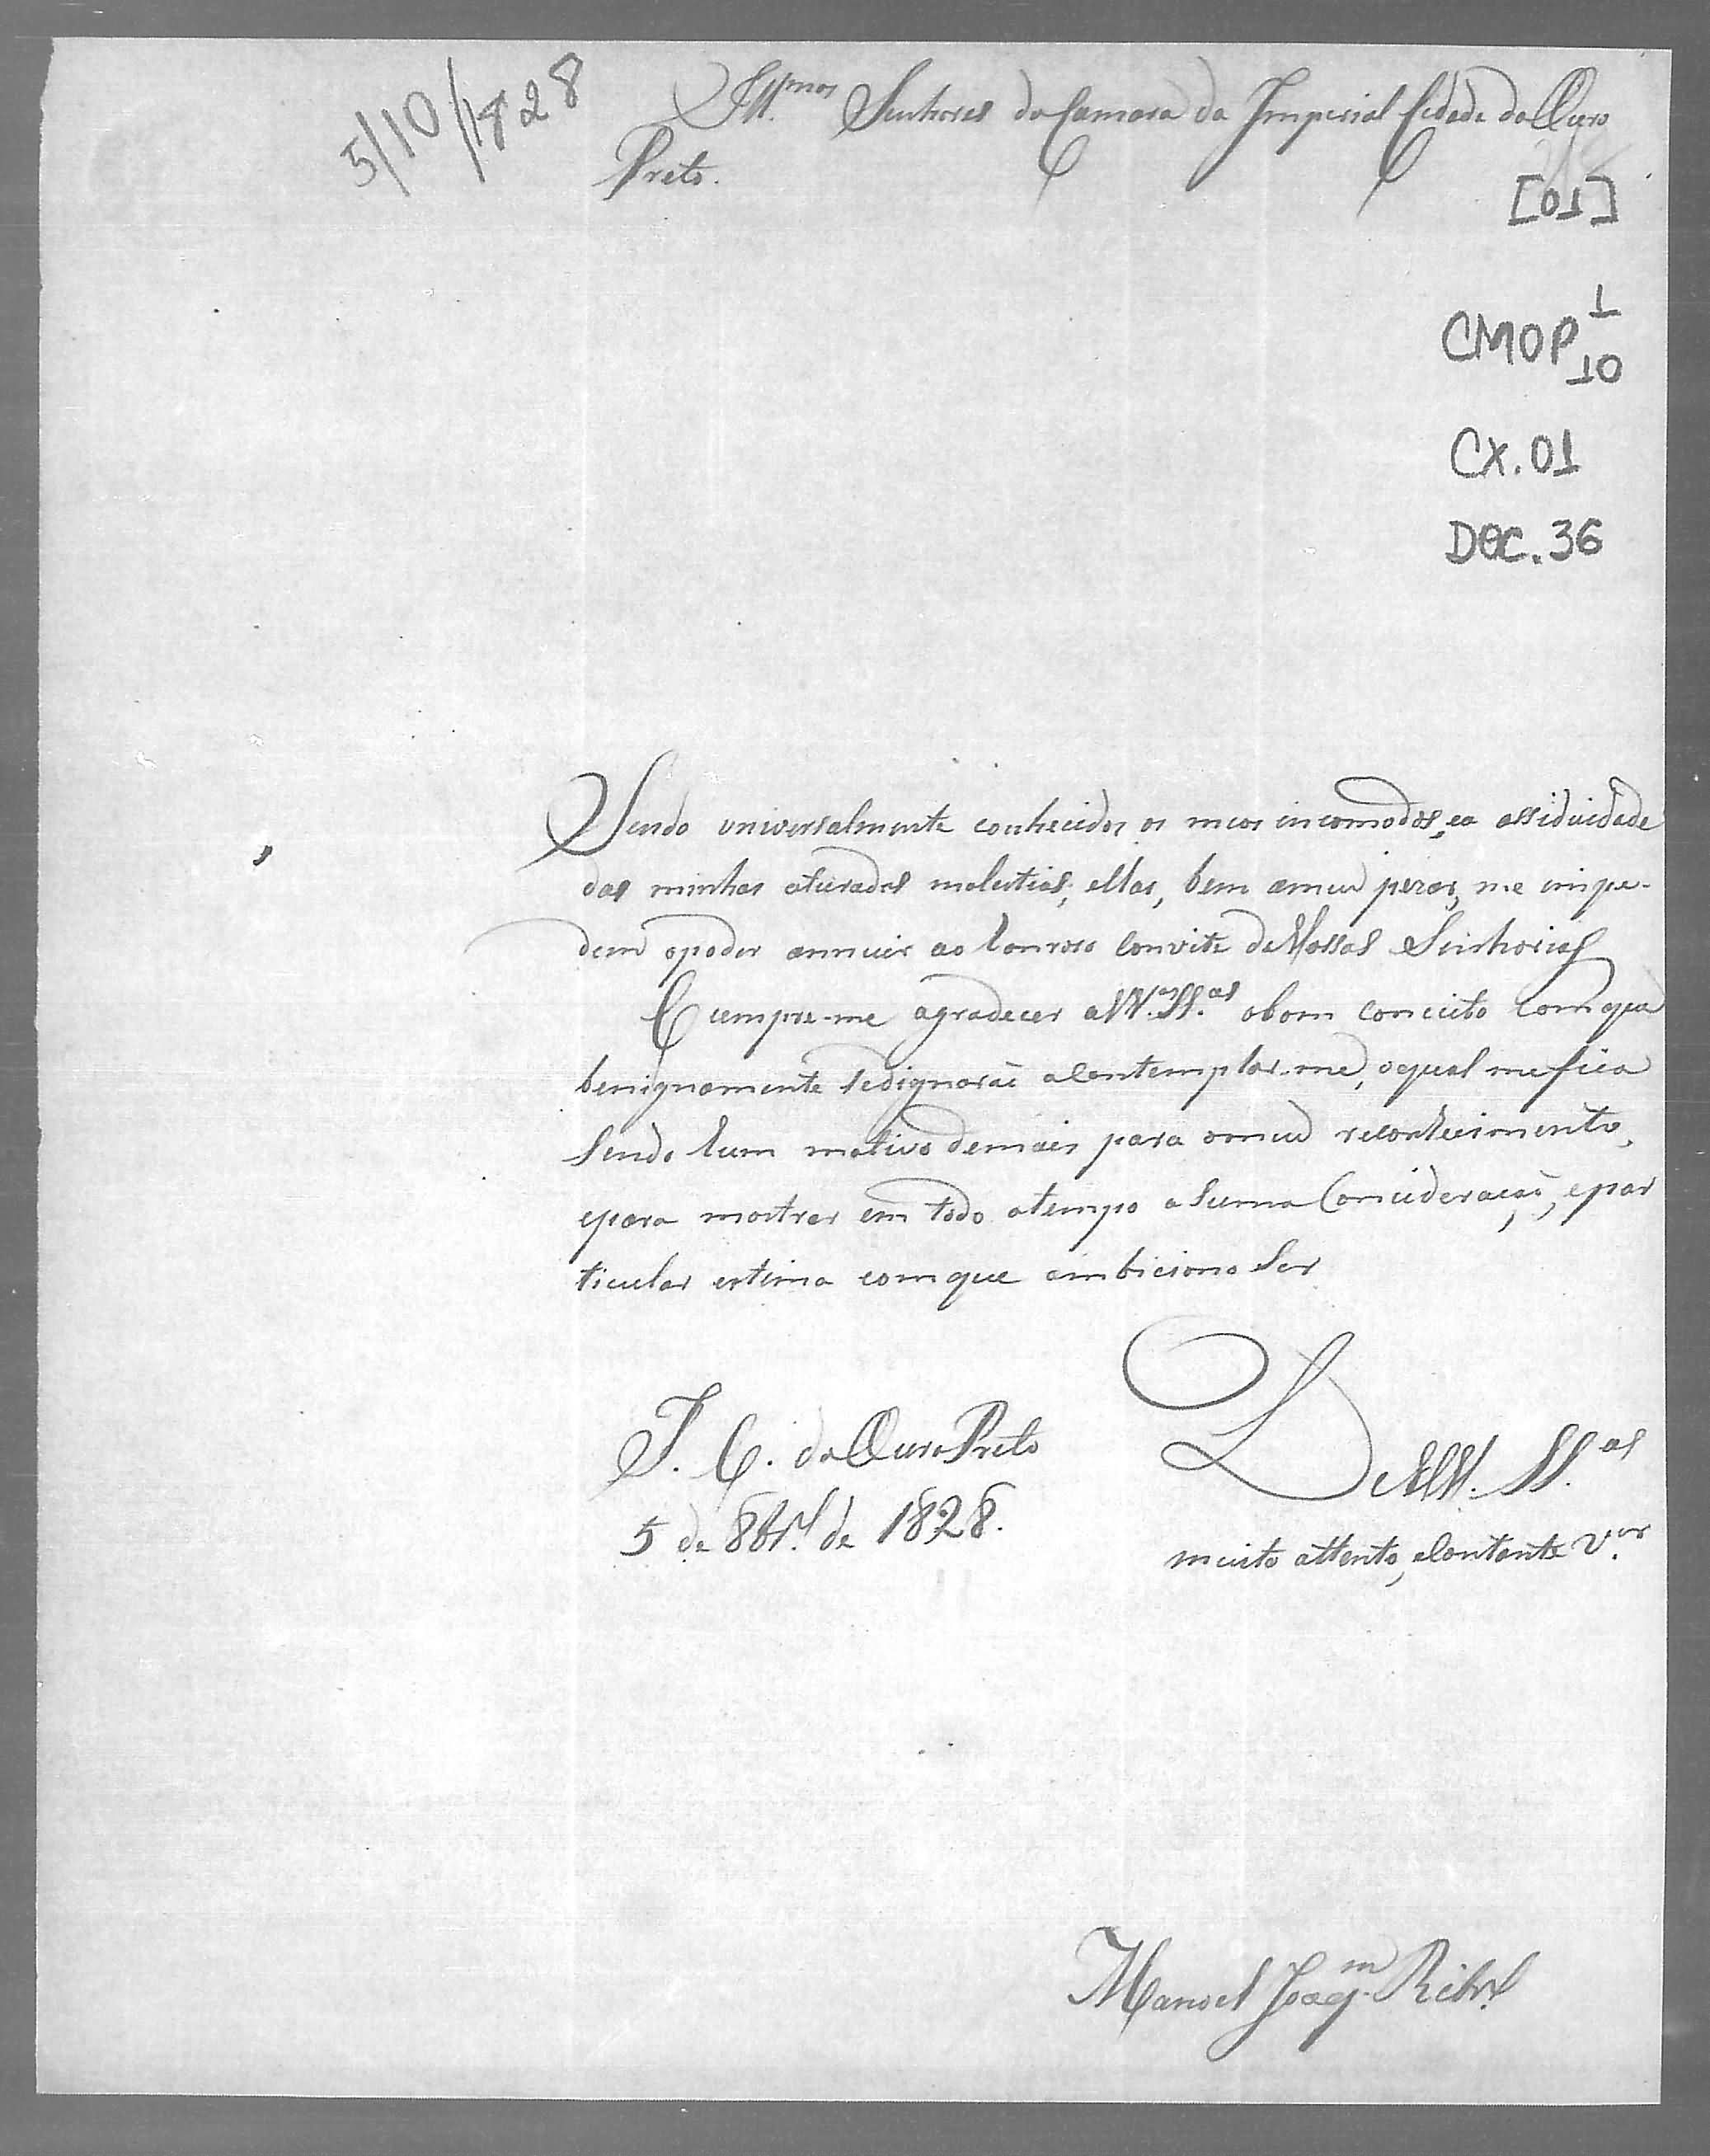 5/10/1828
Ill.mos Senhores da Camara da Imperial Cidade do Ouro
Preto.
[01]
CMOP 1
10
CX.01
DOC.36
Sendo universalmente conhecidos os meos incomodos, ea assiduidade
das minhas aturadas molestias; ellas, bem ameu pezar, me impe-
dem opoder annuir ao honroso convite de Vossas Senhorias
Cumpre-me agradecer a VV.as SS.as obom conceito com que
benignamente sedignarão acontemplar-me, oqual mefica
sendo hum motivo demais para omeu reconhecimento,
epara mostrar em todo otempo a suma Concideração, epar
ticular estima comque ambiciono ser
De VV. SS.as
I. C. do Ouro Preto
5 de 8br.o de 1828.
muito attento, econtante V.or
Manoel Joaq.m Ribr.o